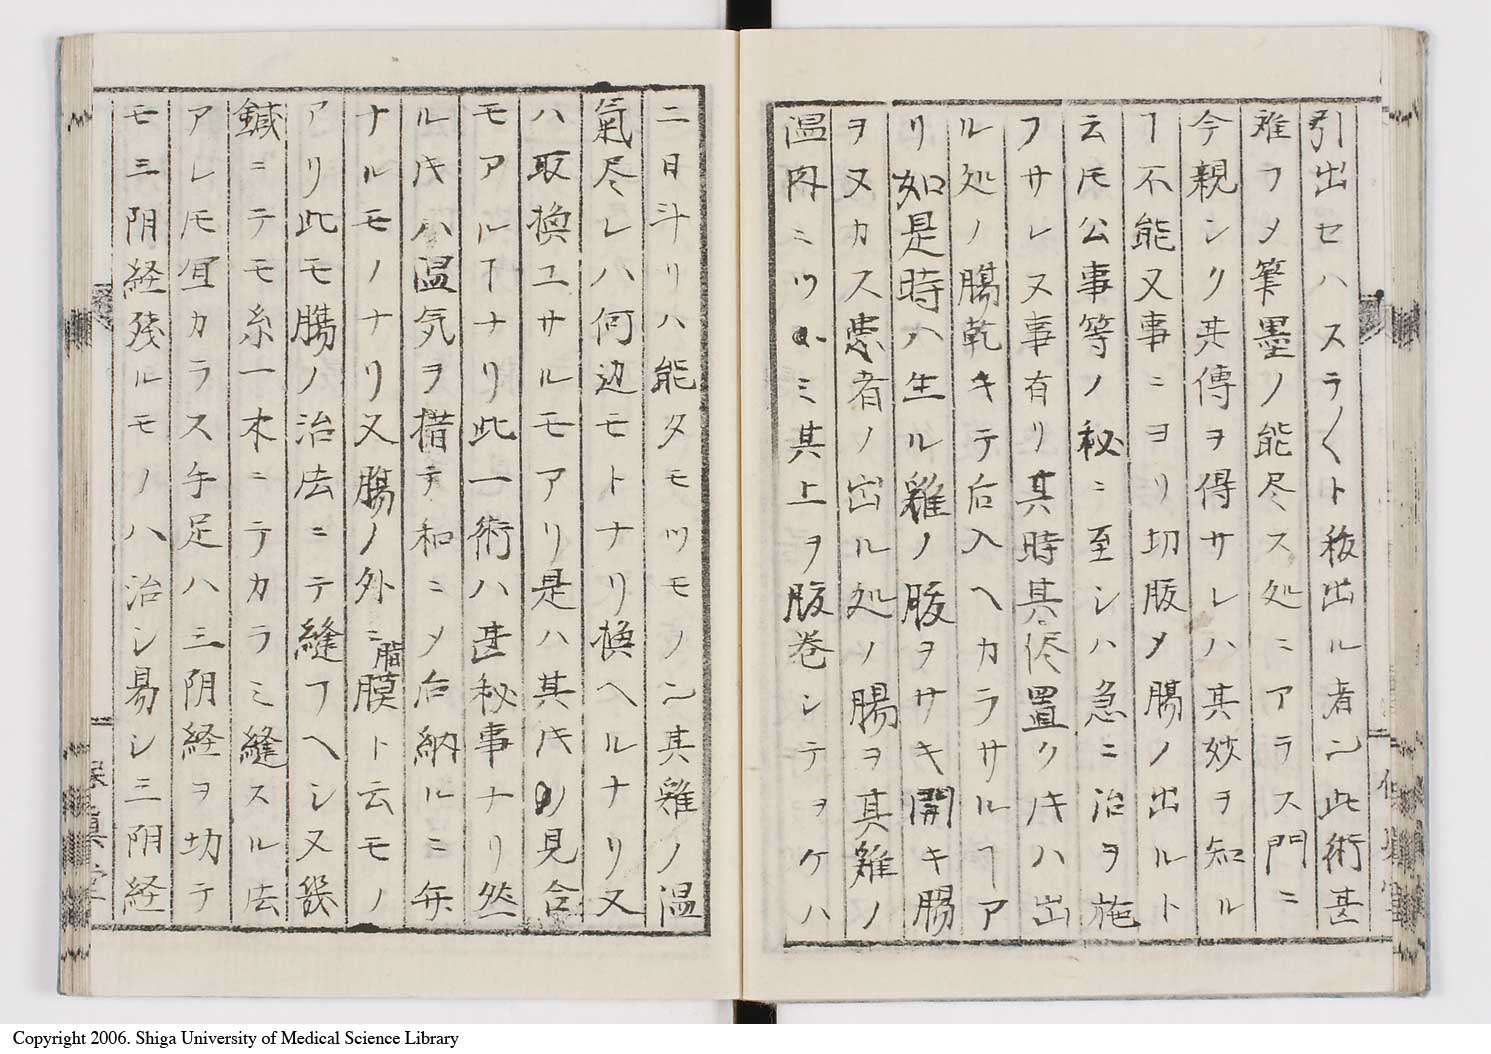 引出セハスラ〱ト抜出ル者ン此術甚
難フメ筆墨ノ能尽ス処ニアラス門ニ
今親シク其傳ヲ得サレハ其妙ヲ知ル
ヿ不能又事ニヨリ切腹メ腸ノ出ルト
云𪜈公事等ノ秘ニ至シハ急ニ治ヲ施
フサレヌ事有リ其時其侭置ク𪜈ハ出
ル処ノ腸乾キテ后入ヘカラサルヿア
リ如是時ハ生ル雞ノ腹ヲサキ開キ腸
ヲヌカス患者ノ出ル処ノ腸ヲ其雞ノ
温内ニツヽミ其上ヲ腹巻シテヲケハ
二日斗リハ能タモツモノン其雞ノ温
氣尽レハ何辺モトナリ換ヘルナリ又
ハ取換ユサルモアリ是ハ其𪜈ノ見合
モアルヿナリ此一術ハ甚秘事ナリ然
ル𪜈ハ温気ヲ措テ和ニメ后納ルニ年
ナルモノナリ又腸ノ外ニ脂膜ト云モノ
アリ此モ腸ノ治法ニテ縫フヘシ又幾
鍼ニテモ糸一本ニテカラミ縫スル法
アレ𪜈冝カラス手足ハ三阴経ヲ切テ
モ三阴経残ルモノハ治シ易シ三阴経